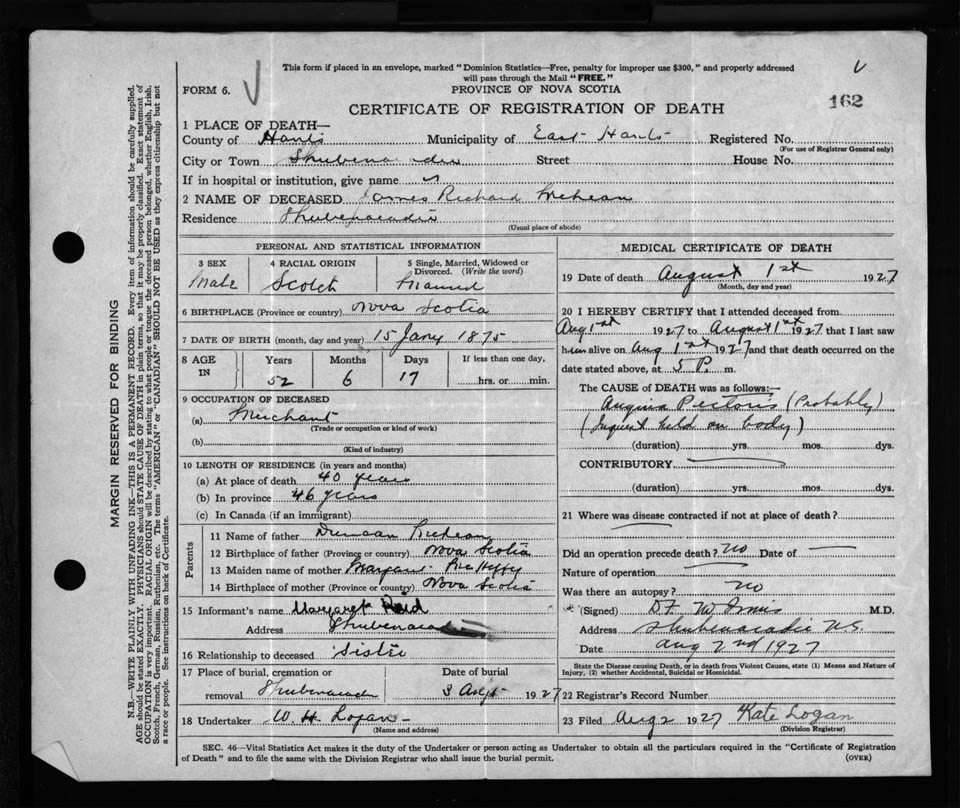 This form if placed in an envelope, marked "Dominion Statistics—Free, penalty for improper use $300," and properly addressed
will pass through the Mail "FREE."
FORM 6.
PROVINCE OF NOVA SCOTIA
162
CERTIFICATE OF REGISTRATION OF DEATH
1 PLACE OF DEATH—
County of Hants Municipality of East Hants Registered No.
(For use of Registrar General only)
City or Town Shubenacadie Street House No.
If in hospital or institution, give name
2 NAME OF DECEASED James Richard McLean
Residence Shubenacadie
(Usual place of abode)
PERSONAL AND STATISTICAL INFORMATION
3 SEX 4 RACIAL ORIGIN 5 Single, Married, Widowed or
Divorced. (Write the word)
Male Scotch Married
6 BIRTHPLACE (Province or country) Nova Scotia
7 DATE OF BIRTH (month, day and year) 15 Jany 1875
8 AGE IN Years Months Days If less than one day,
52 6 17 hrs. or min.
9 OCCUPATION OF DECEASED
(a) Merchant
(Trade or occupation or kind of work)
(b)
(Kind of industry)
10 LENGTH OF RESIDENCE (in years and months)
(a) At place of death 40 years
(b) In province 46 years
(c) In Canada (if an immigrant)
Parents
11 Name of father Duncan McLean
12 Birthplace of father (Province or country) Nova Scotia
13 Maiden name of mother Margaret McHeffy
14 Birthplace of mother (Province or country) Nova Scotia
15 Informant's name Margaret Reid
Address Shubenacadie
16 Relationship to deceased Sister
17 Place of burial, cremation or Date of burial
removal Shubenacadie 3 Aug 1927
18 Undertaker W H Logan
(Name and address)
MEDICAL CERTIFICATE OF DEATH
19 Date of death August 1st 1927
(Month, day and year)
20 I HEREBY CERTIFY that I attended deceased from
Aug 1st 1927 to August 1st 1927 that I last saw
him alive on Aug 1st 1927 and that death occurred on the
date stated above, at 5 P. m.
The CAUSE OF DEATH was as follows:—
Angina Pectoris (Probably)
(Inquest held on body)
(duration) yrs. mos. dys.
CONTRIBUTORY
(duration) yrs. mos. dys.
21 Where was disease contracted if not at place of death?
Did an operation precede death? No Date of
Nature of operation
Was there an autopsy? no
(Signed) D F McInnis M.D.
Address Shubenacadie N.S.
Date Aug 2nd 1927
State the Disease causing Death, or in death from Violent Causes, state (1) Means and Nature of
Injury, (2) whether Accidental, Suicidal or Homicidal.
22 Registrar's Record Number
23 Filed Aug 2 1927 Kate Logan
(Division Registrar)
SEC. 46—Vital Statistics Act makes it the duty of the Undertaker or person acting as Undertaker to obtain all the particulars required in the "Certificate of Registration
of Death" and to file the same with the Division Registrar who shall issue the burial permit.
(OVER)
MARGIN RESERVED FOR BINDING
N.B.—WRITE PLAINLY WITH UNFADING INK—THIS IS A PERMANENT RECORD. Every item of information should be carefully supplied.
AGE should be stated EXACTLY. PHYSICIANS should STATE CAUSE OF DEATH in plain terms, so that it may be properly classified. Exact statement of
OCCUPATION is very important. RACIAL ORIGIN will be described by stating to what people or tongue the deceased person belonged, whether English, Irish,
Scotch, French, German, Russian, Ruthenian, etc. The terms "AMERICAN" or "CANADIAN" SHOULD NOT BE USED as they express citizenship but not
a race or people. See instructions on back of Certificate.